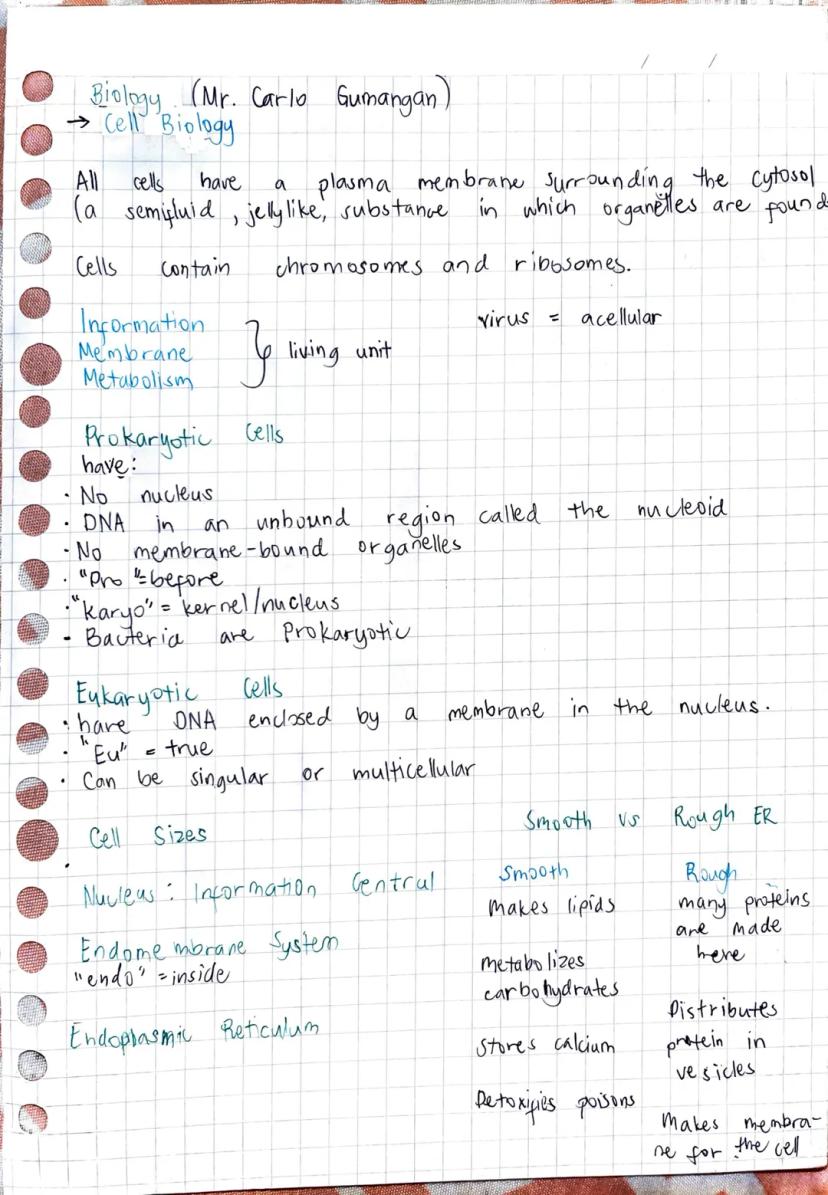 Biology (Mr. Carlo Gumangan)
→ Cell Biology
All cells have a plasma membrane surrounding the cytosol
(a semifluid, jellylike, substance in which organelles are found
Cells contain chromosomes and ribosomes.
Information
Membrane
Metabolism
} living unit
virus = acellular
Prokaryotic Cells
have:
• No nucleus
• DNA in an unbound region called the nucleoid
• No membrane-bound organelles
• "Pro" = before
• "karyo" = kernel/nucleus
• Bacteria are Prokaryotic
Eukaryotic Cells
• have DNA enclosed by a membrane in the nucleus.
• "Eu" = true
• Can be singular or multicellular
Cell Sizes
•
Nucleus: Information Central
Endomembrane System
"endo" = inside
Endoplasmic Reticulum
Smooth vs Rough ER
Smooth
Makes lipids
metabolizes
carbohydrates
Stores calcium
Detoxifies poisons
Rough
many proteins
are made
here
Distributes
protein in
vesicles
Makes membra-
ne for the cell